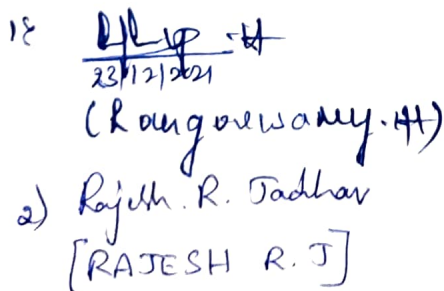 1)
23/12/2021
(Rangaswamy.H)
2) Rajesh. R. Jadhav
[RAJESH R. J]